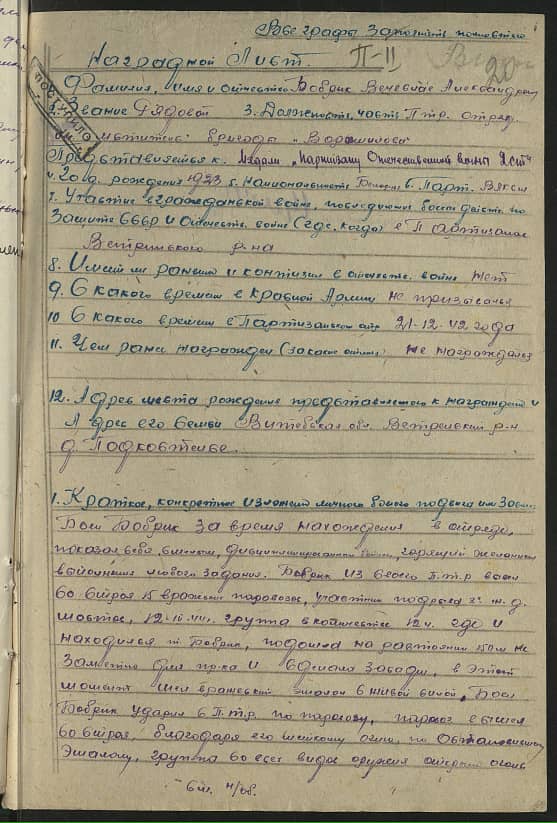 Все графы заполнять полностью
Наградной Лист. П-II
20
1. Фамилия, имя и отчество Бобрик Александрович
2. Звание Рядовой 3. Должность, часть П.т.р. отряд
бригады "Ворошилова"
Представляется к Медали "Партизану Отечественной войны II ст"
4. Год рождения 1923 5. Национальность 6. Парт. ВЛКСМ
7. Участие в гражданской войне, последующих боевых действ. по
защите СССР и отечеств. войне (где, когда) в Партизанах
Ветринского р-на
8. Имеет ли ранения и контузии в отечеств. войне нет
9. С какого времени в Красной Армии не призывался
10 С какого времени в Партизанском отр 21-12-42 года
11. Чем ранее награжден (за какие отличия) не награждался
12. Адрес места рождения представляемого к награждению и
Адрес его семьи Витебская обл. Ветринский р-н
д.
1. Краткое, конкретное изложение личного боевого подвига или заслуг
Бобрик за время нахождения в отряде,
показал себя смелым, дисциплинированным бойцом, горящий желанием
выполнения любого задания. Бобрик из своего П.т.р вывел
со строя 15 вражеских паровозов, участник подрыва ж.д.
мостов, группа в количестве 12 ч. где и
находился т. Бобрик, подошла на расстояние 150 м не
заметно для пр-ка и сделала засаду, в этот
момент шел вражеский эшелон с живой силой,
Бобрик ударил с П.т.р. по паровозу, паровоз вышел
со строя, благодаря его меткому огню, по остановившемуся
эшелону, группа со всех видов оружия открыла огонь
См. н/об.